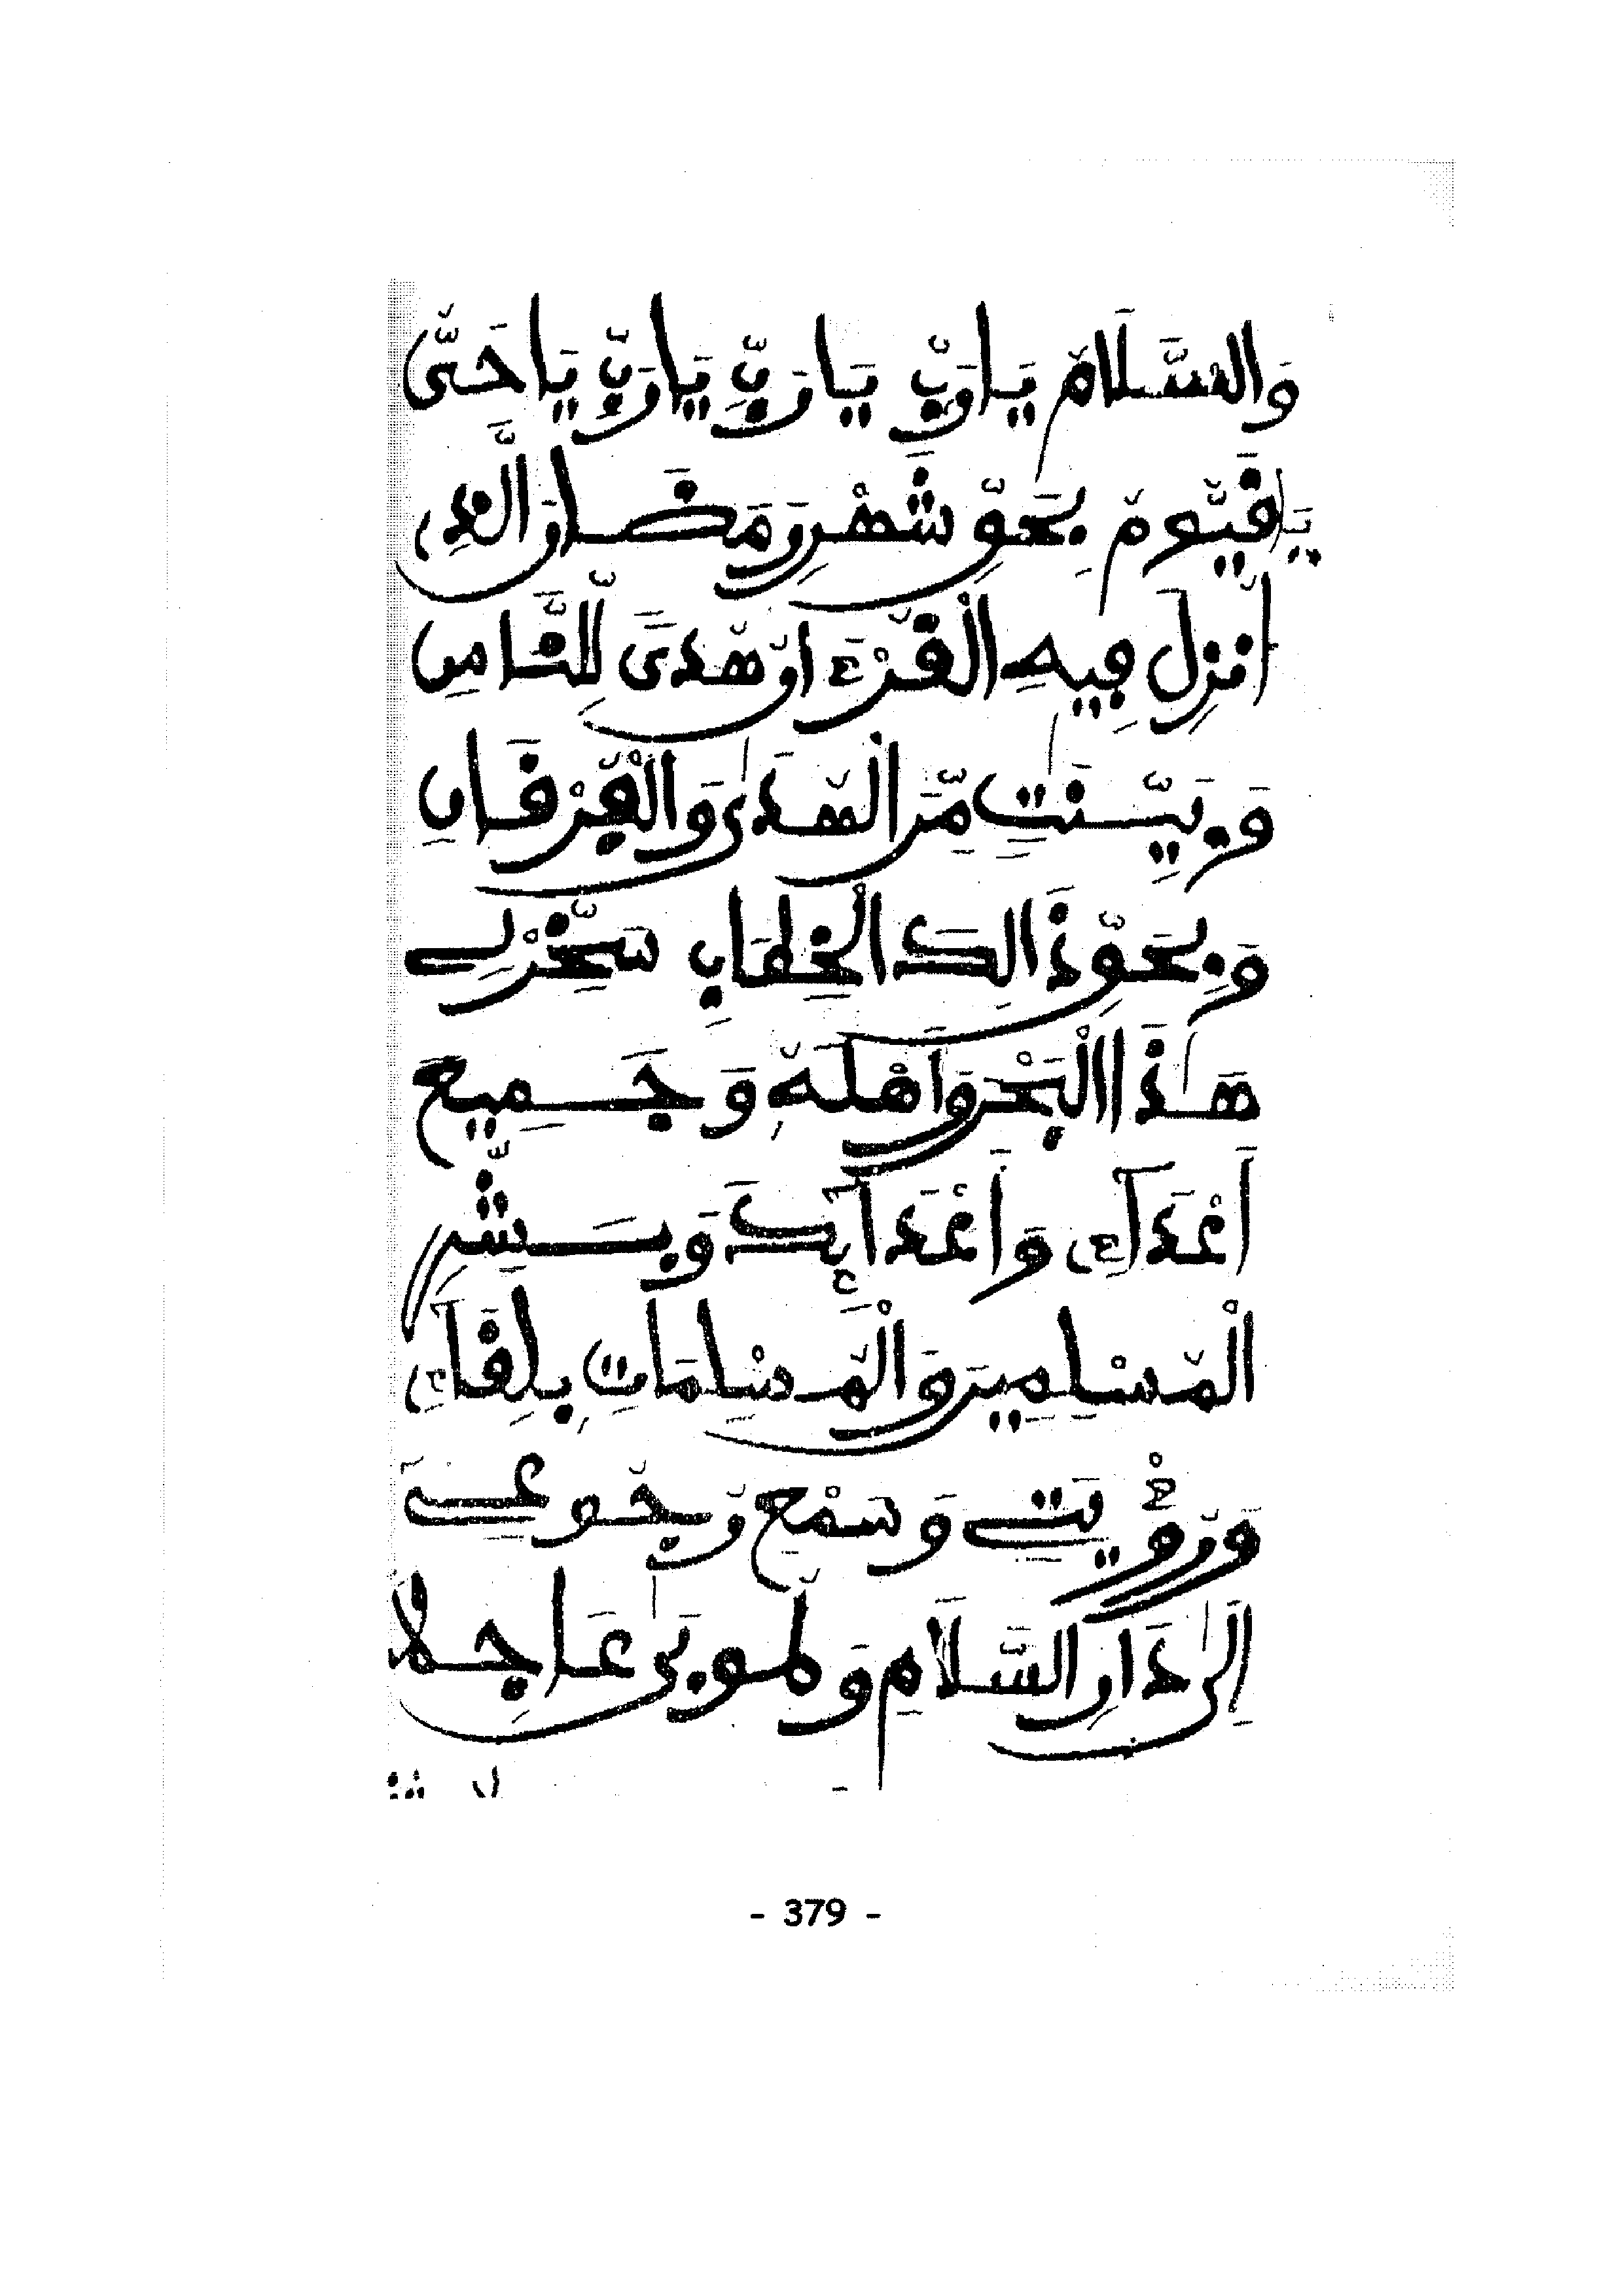 وَالسَّلَامُ يَارَبِّ يَارَبِّ يَارَبِّ يَاحَيُّ
يَاقَيُّومُ بِحَقِّ شَهْرِ رَمَضَانَ الَّذِي
أُنزِلَ فِيهِ الْقُرْءَانُ هُدًى لِّلنَّاسِ
وَبَيِّنَٰتٍ مِّنَ الْهُدَىٰ وَالْفُرْقَانِ
وَبِحَقِّ ذَالِكَ الْخِطَابِ سَخِّرْ لِي
هَٰذَا الْبَحْرَ وَأَهْلَهُ وَجَمِيعَ
أَعْدَآءِي وَأَعْدَآئِكَ وَبَشِّرِ
الْمُسْلِمِينَ وَالْمُسْلِمَاتِ بِلِقَآءِي
وَرُؤْيَتِي وَسَمْعِ رُجُوعِي
إِلَىٰ دَارِ السَّلَامِ وَطُوبَىٰ عَاجِلًا
- 379 -